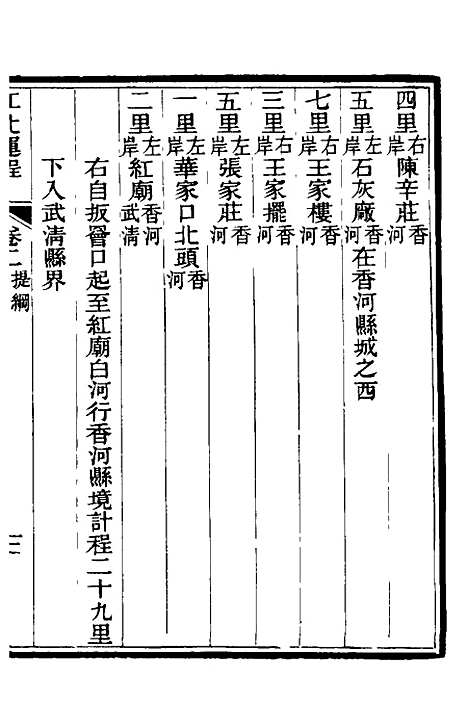 四里右岸陳辛莊香河
五里左岸石灰廠香河在香河縣城之西
七里右岸王家樓香河
三里右岸王家擺香河
五里左岸張家莊香河
一里左岸華家口北頭香河
二里左岸紅廟香河武清
右自扳罾口起至紅廟白河行香河縣境計程二十九里
下入武清縣界
江北運程 卷二 提綱